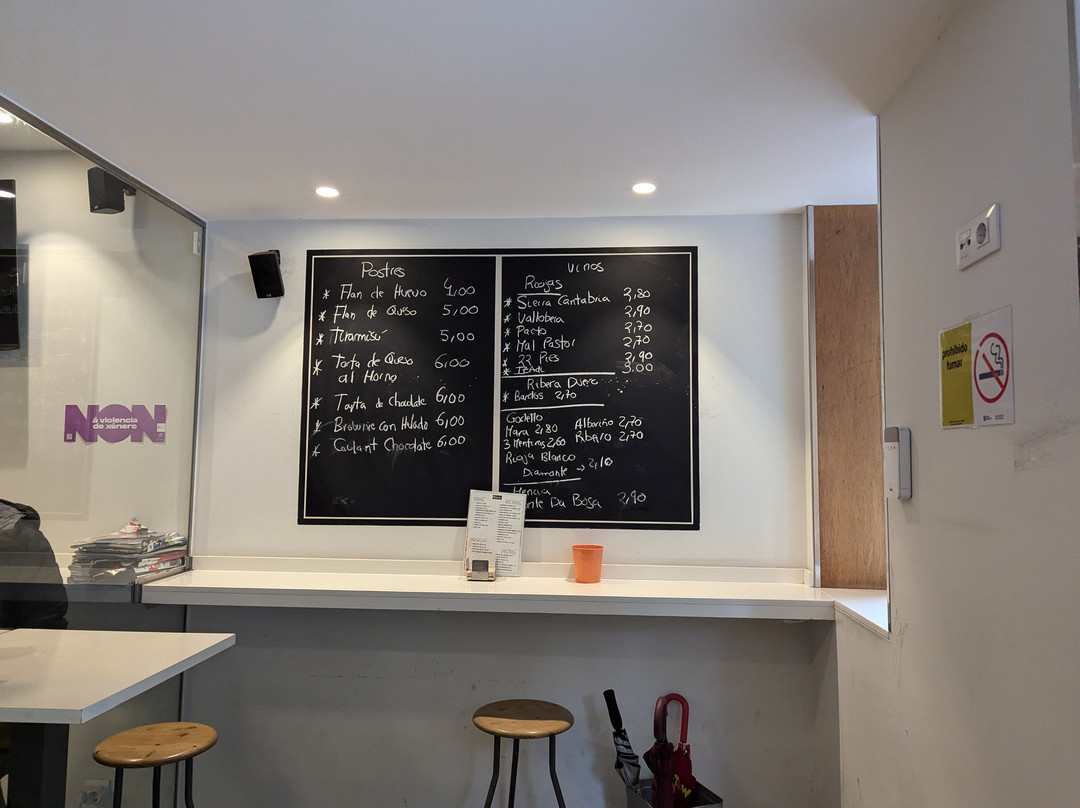 Postres
* Flan de Huevo 4,00
* Flan de Queso 5,00
* Tiramisú 5,00
* Tarta de Queso 6,00
al Horno
* Tarta de Chocolate 6,00
* Brownie con Helado 6,00
* Coulant Chocolate 6,00
Vinos
Riojas
* Sierra Cantabria 2,80
* Vallobera 2,90
* Pacto 2,70
* Mal Pastor 2,70
* 22 Pies 2,90
* Izadi 3,00
Ribera Duero
* Bardos 2,70
Godello
Mara 2,80 Albariño 2,70
3 Mentiras 2,60 Ribeiro 2,70
Rioja Blanco
Diamante → 2,10
Mencia
Da Bosa 2,90
NON
á violencia
de xénero
prohibido
fumar